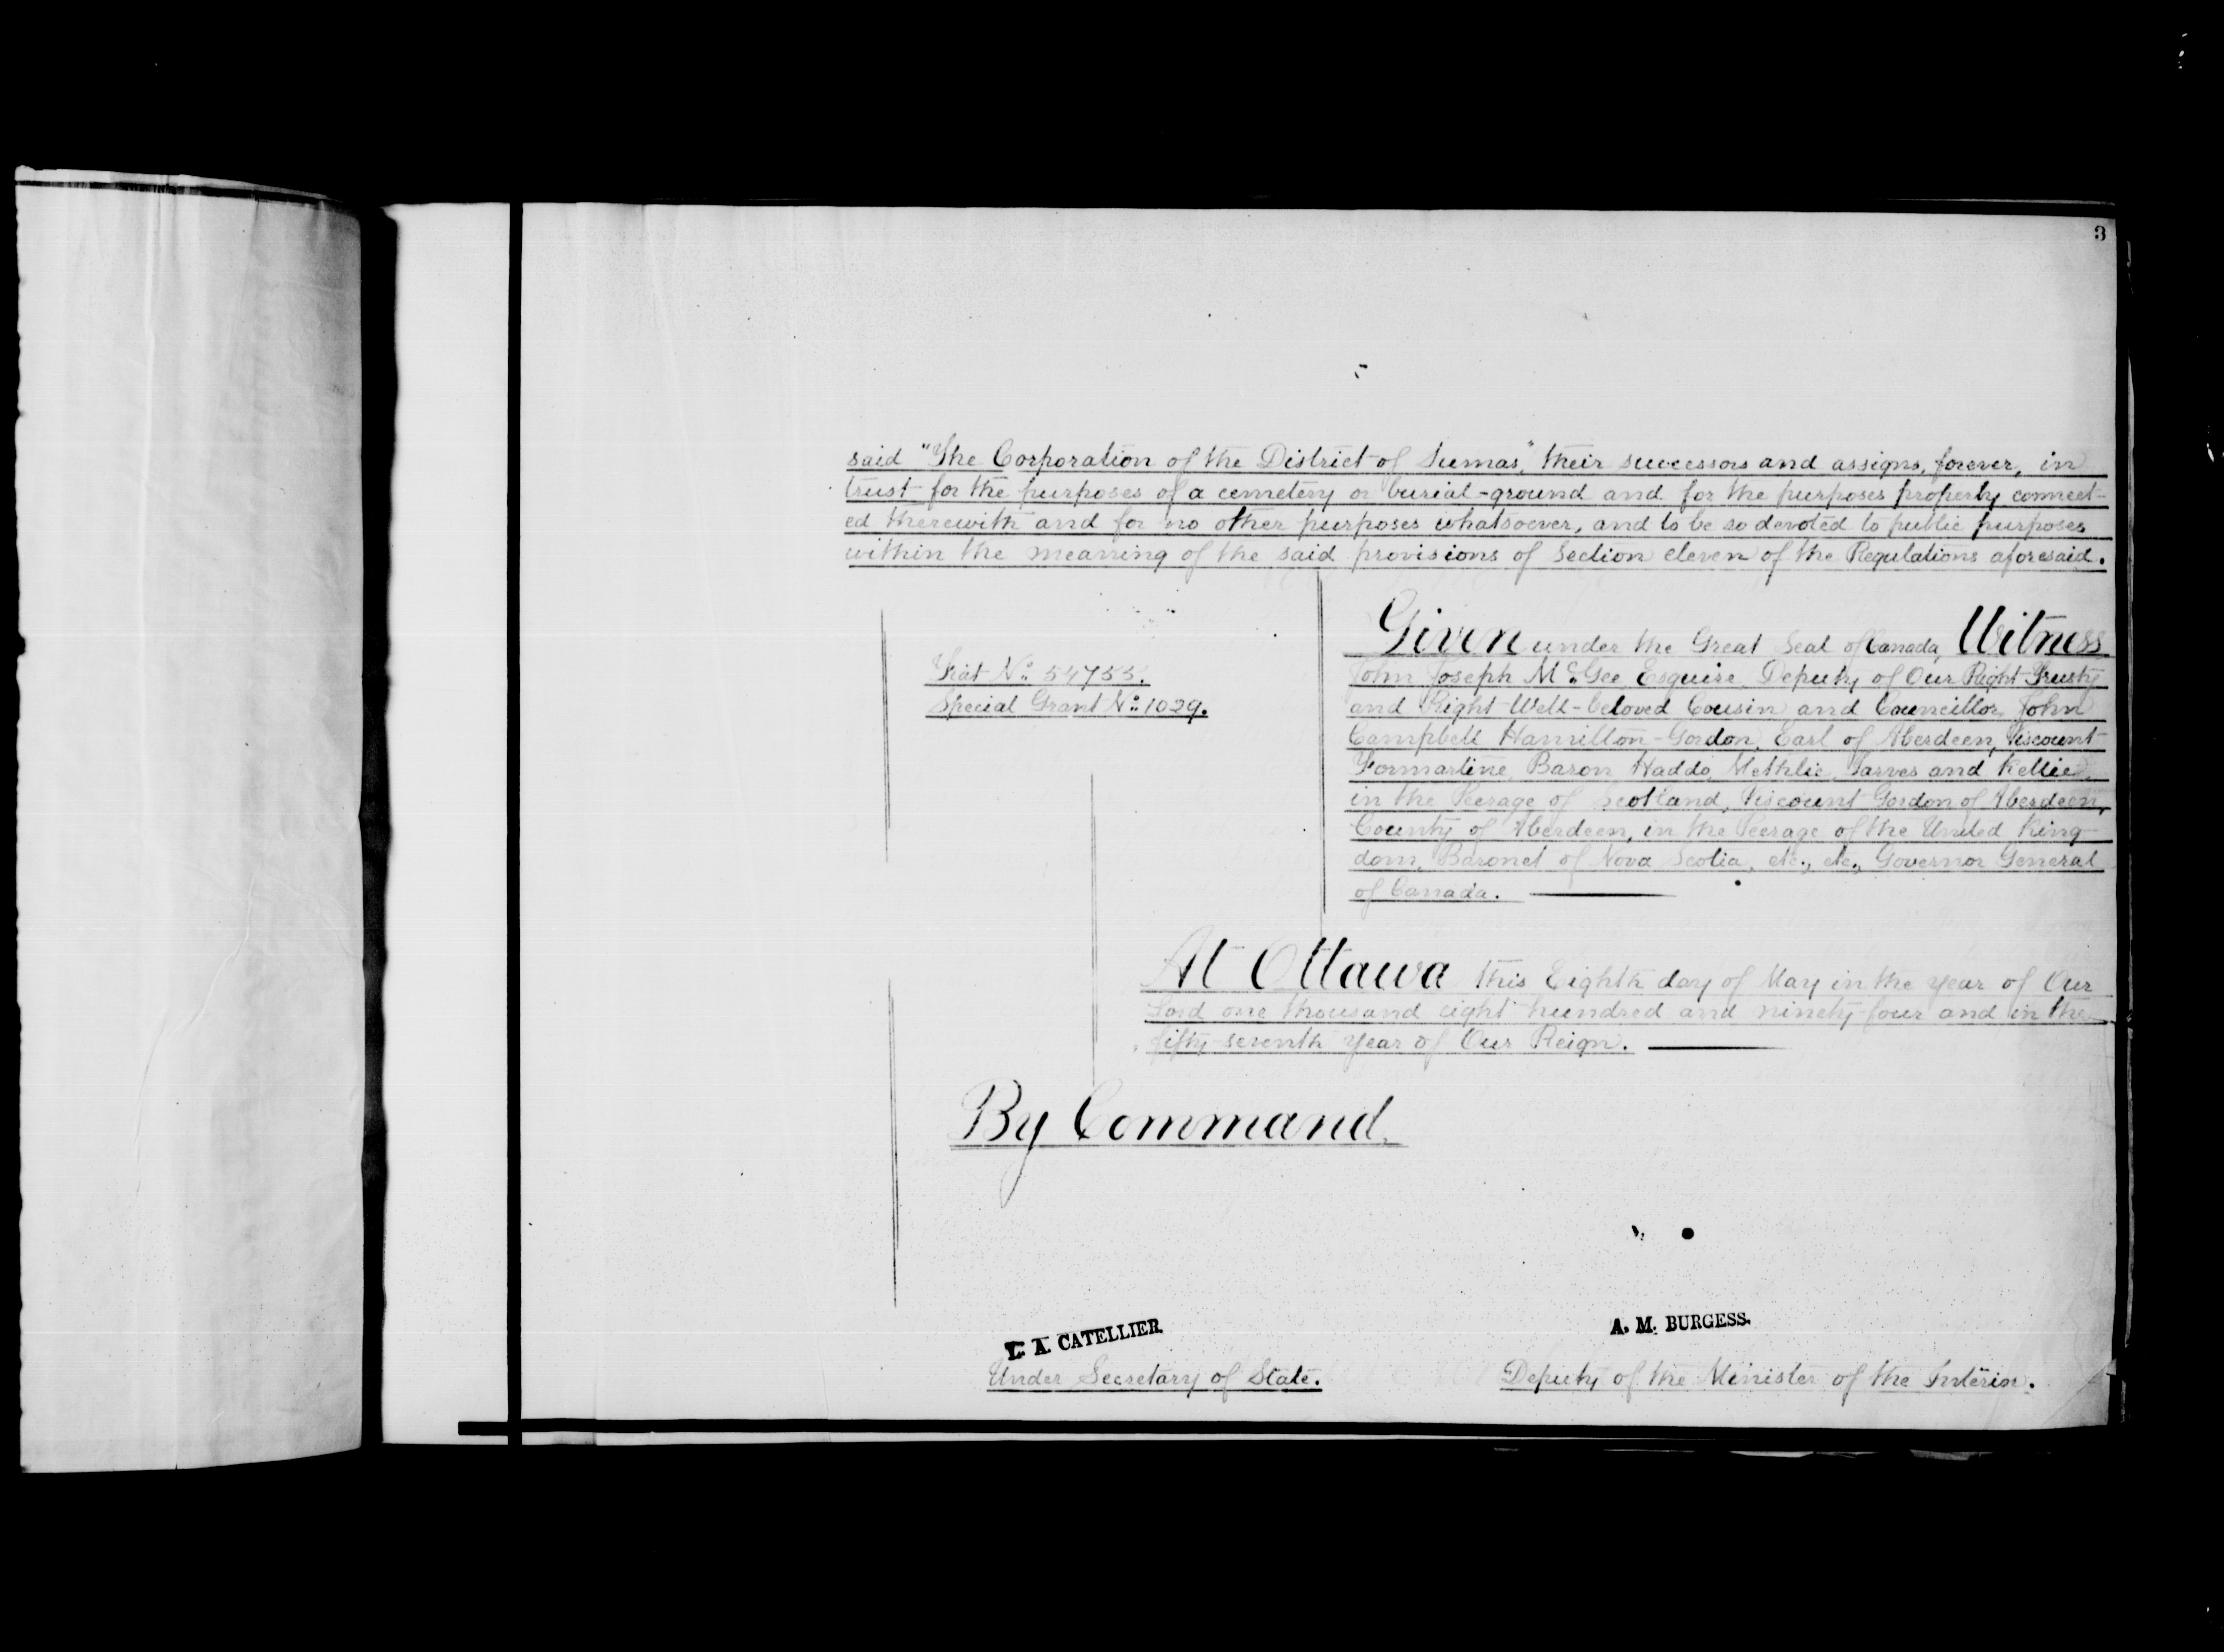 3
said "The Corporation of the District of Sumas," their successors and assigns, forever, in
trust for the purposes of a cemetery or burial-ground and for the purposes properly connect-
ed therewith and for no other purposes whatsoever, and to be so devoted to public purposes
within the meaning of the said provisions of Section eleven of the Regulations aforesaid.
Fiat No. 54755.
Special Grant No. 1029.
Given under the Great Seal of Canada, Witness
John Joseph McGee Esquire, Deputy of Our Right Trusty
and Right Well-beloved Cousin and Councillor John
Campbell Hamilton-Gordon, Earl of Aberdeen, Viscount
Formartine, Baron Haddo, Methlic, Tarves and Kellie,
in the Peerage of Scotland, Viscount Gordon of Aberdeen,
County of Aberdeen, in the Peerage of the United King-
dom, Baronet of Nova Scotia, etc., etc., Governor General
of Canada.
At Ottawa this Eighth day of May in the year of Our
Lord one thousand eight hundred and ninety-four and in the
fifty-seventh year of Our Reign.
By Command,
L. A. CATELLIER.
Under Secretary of State.
A. M. BURGESS.
Deputy of the Minister of the Interior.